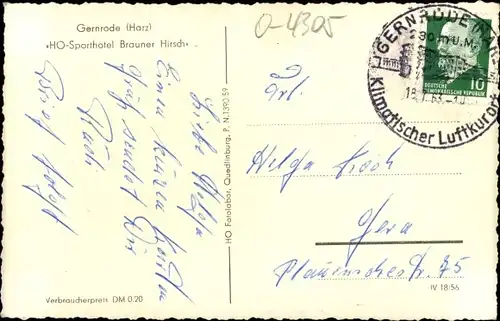 Gernrode (Harz)
«HO-Sporthotel Brauner Hirsch»
O-4305
GERNRODE/HARZ
300 m ü. M.
Klimatischer Luftkurort
10
DEUTSCHE
DEMOKRATISCHE REPUBLIK
Liebe Helga
Einen kurzen
Gruß sendet Dir
Brief folgt
HO Fotolabor, Quedlinburg, P. N. 1390 59
Frl.
Helga Koch
Gera
Plauenschestr. 75
IV 18 56
Verbraucherpreis DM 0,20